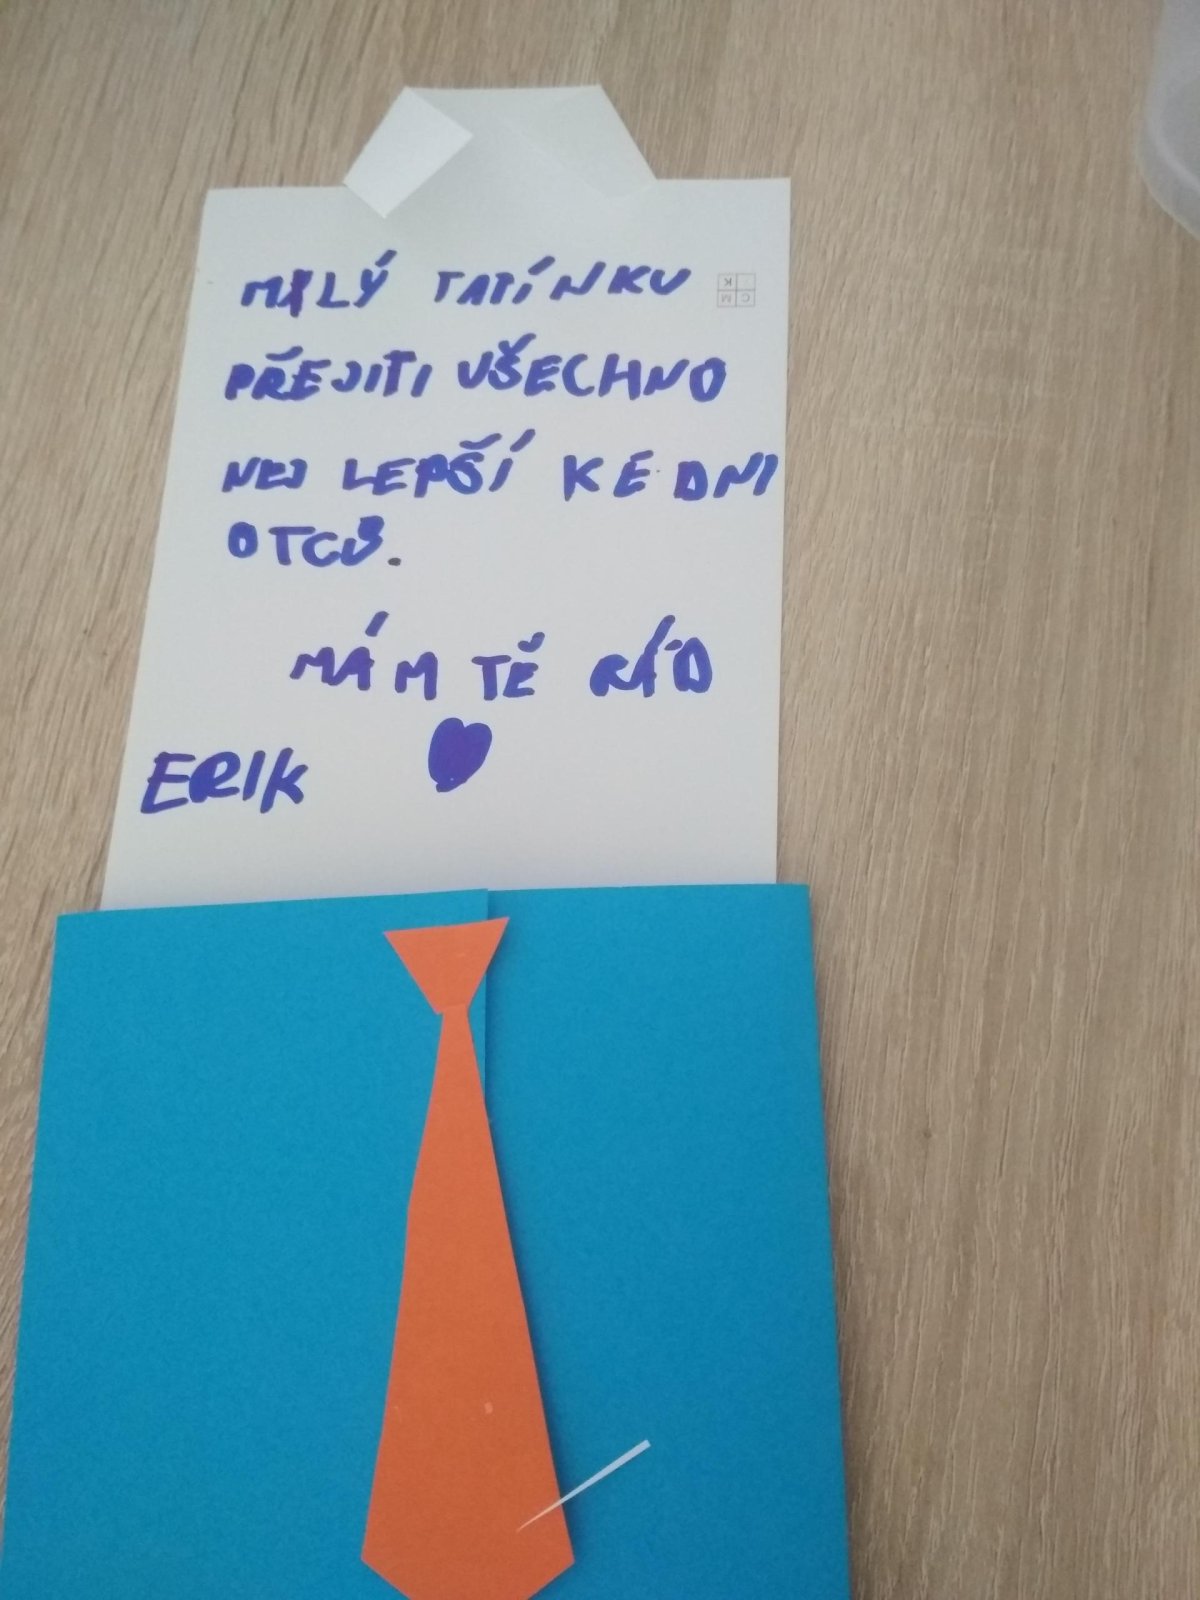 MILÝ TATÍNKU
PŘEJITI VŠECHNO
NEJ LEPŠÍ KE DNI
OTCŮ.
MÁM TĚ RÁD
ERIK
K
C M